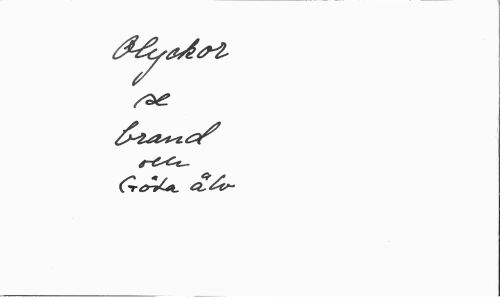 Olyckor
se
brand
och
Göta älv